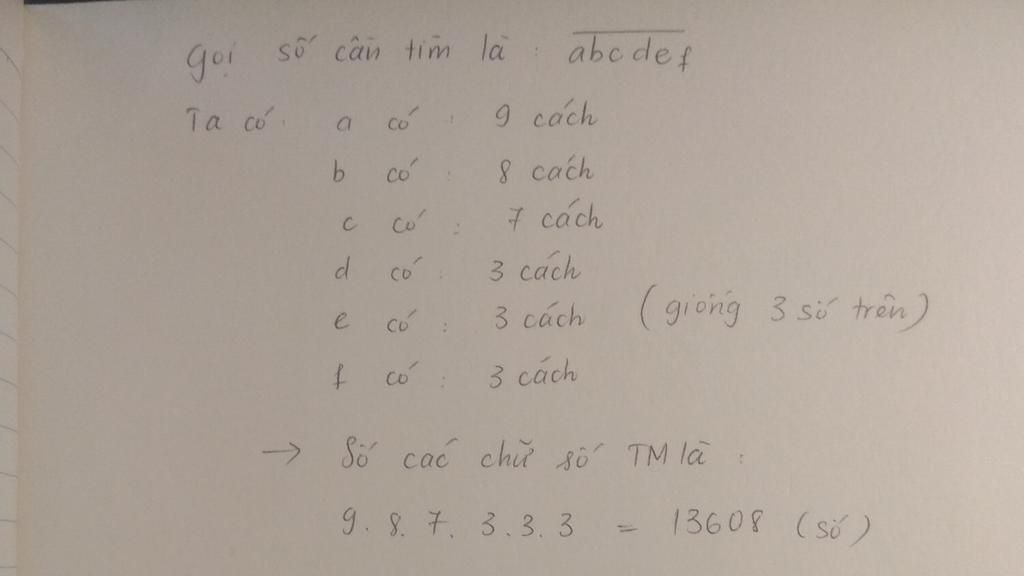 Gọi số cần tìm là : abcdef
Ta có : a có : 9 cách
b có : 8 cách
c có : 7 cách
d có : 3 cách
e có : 3 cách (giống 3 số trên)
f có : 3 cách
→ Số các chữ số TM là :
9. 8. 7. 3. 3. 3 = 13608 (số)